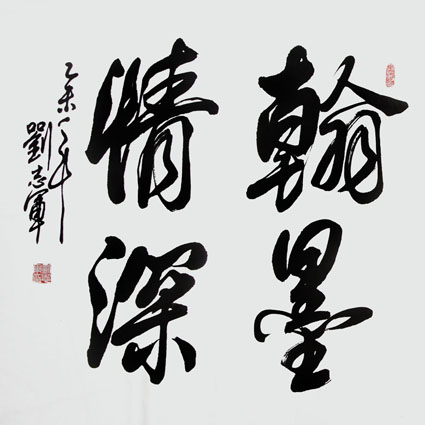 翰墨
情深
乙未年
劉志軍